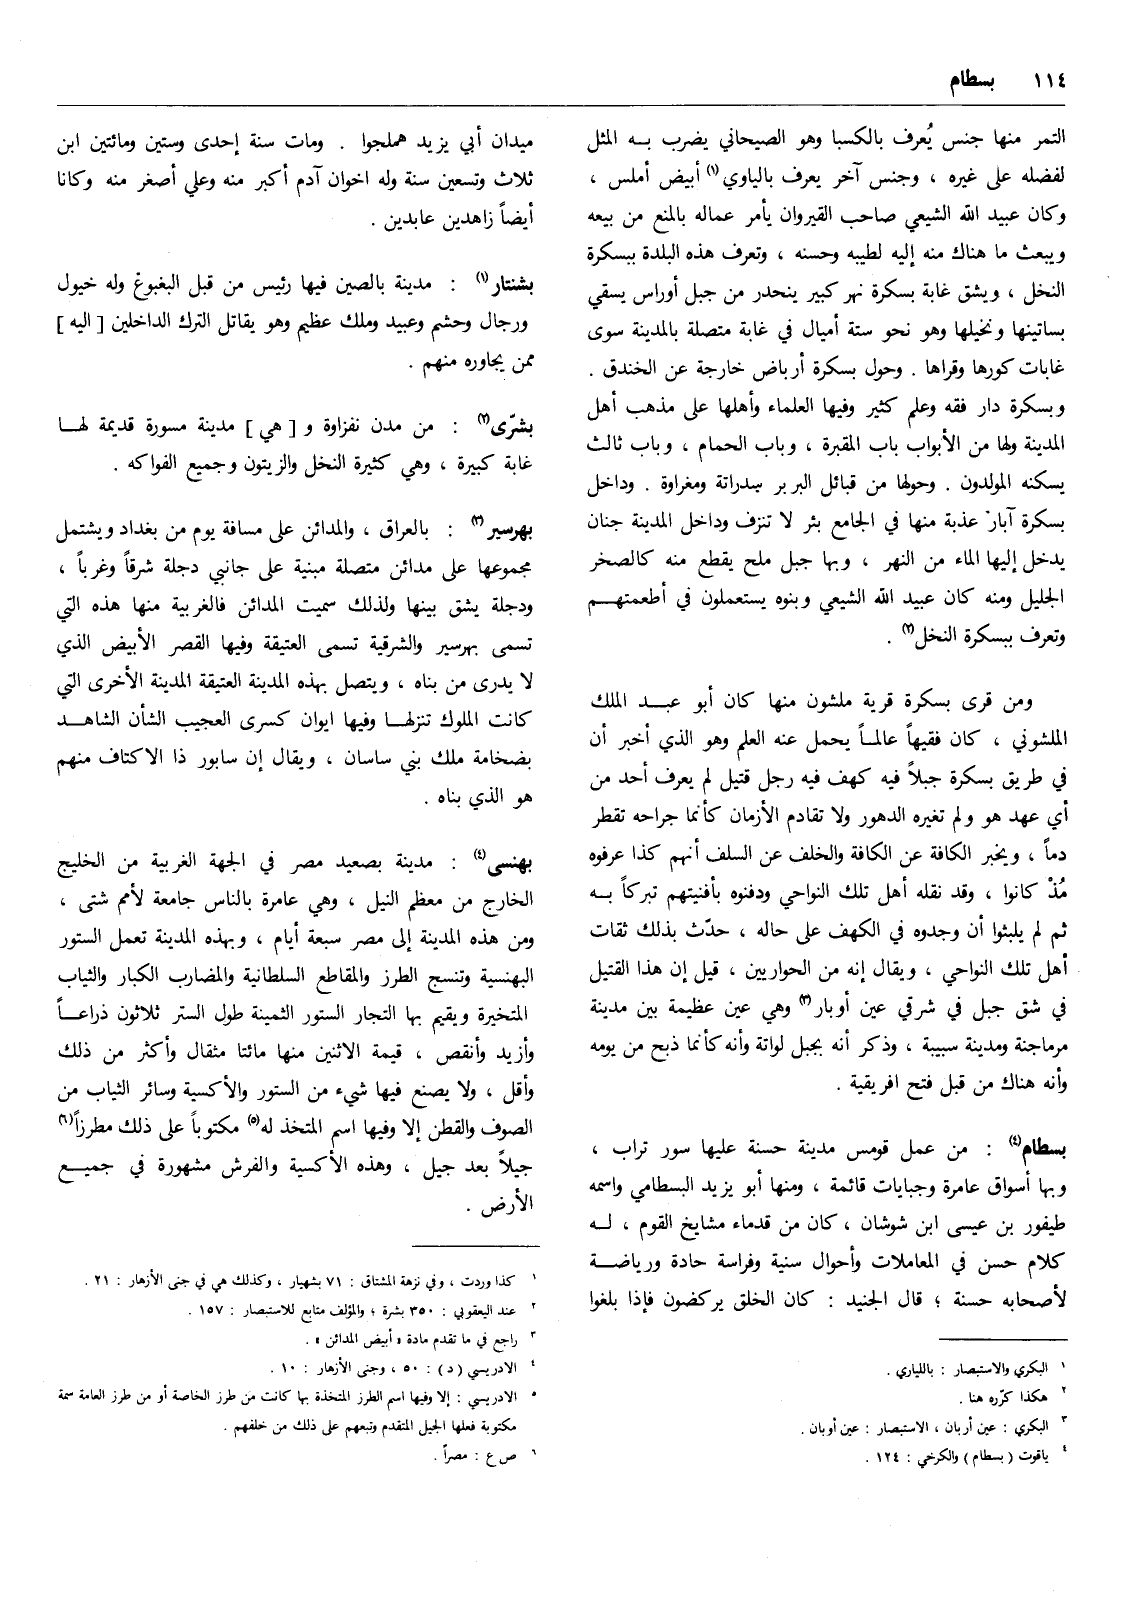 ١١٤ بسطام
التمر منها جنس يُعرف بالكسبا وهو الصيحاني يضرب بـه المثل
لفضله على غيره ، وجنس آخر يعرف بالياوي(١) أبيض أملس ،
وكان عبيد الله الشيعي صاحب القيروان يأمر عماله بالمنع من بيعه
ويبعث ما هناك منه إليه لطيبه وحسنه ، وتعرف هذه البلدة ببسكرة
النخل ، ويشق غابة بسكرة نهر كبير ينحدر من جبل أوراس يسقي
بساتينها ونخيلها وهو نحو ستة أميال في غابة متصلة بالمدينة سوى
غابات كورها وقراها . وحول بسكرة أرباض خارجة عن الخندق .
وبسكرة دار فقه وعلم كثير وفيها العلماء وأهلها على مذهب أهل
المدينة ولها من الأبواب باب المقبرة ، وباب الحمام ، وباب ثالث
يسكنه المولدون . وحولها من قبائل البربر سدراتة ومغراوة . وداخل
بسكرة آبار عذبة منها في الجامع بئر لا تنزف وداخل المدينة جنان
يدخل إليها الماء من النهر ، وبها جبل ملح يقطع منه كالصخر
الجليل ومنه كان عبيد الله الشيعي وبنوه يستعملون في أطعمتهـم
وتعرف ببسكرة النخل(٢) .
ومن قرى بسكرة قرية ملشون منها كان أبو عبـد الملك
الملشوني ، كان فقيهاً عالماً يحمل عنه العلم وهو الذي أخبر أن
في طريق بسكرة جبلاً فيه كهف فيه رجل قتيل لم يعرف أحد من
أي عهد هو ولم تغيره الدهور ولا تقادم الأزمان كأنما جراحه تقطر
دماً ، ويخبر الكافة عن الكافة والخلف عن السلف أنهم كذا عرفوه
مُذْ كانوا ، وقد نقله أهل تلك النواحي ودفنوه بأفنيتهم تبركاً بـه
ثم لم يلبثوا أن وجدوه في الكهف على حاله ، حدّث بذلك ثقات
أهل تلك النواحي ، ويقال إنه من الحواريين ، قيل إن هذا القتيل
في شق جبل في شرقي عين أوبار(٣) وهي عين عظيمة بين مدينة
مرماجنة ومدينة سبيبة ، وذكر أنه بجبل لواتة وأنه كأنما ذبح من يومه
وأنه هناك من قبل فتح افريقية .
بسطام(٤) : من عمل قومس مدينة حسنة عليها سور تراب ،
وبها أسواق عامرة وجبايات قائمة ، ومنها أبو يزيد البسطامي واسمه
طيفور بن عيسى ابن شوشان ، كان من قدماء مشايخ القوم ، لـه
كلام حسن في المعاملات وأحوال سنية وفراسة حادة ورياضـة
لأصحابه حسنة ؛ قال الجنيد : كان الخلق يركضون فإذا بلغوا
١ البكري والاستبصار : باللياري .
٢ هكذا كرّره هنا .
٣ البكري : عين أربان ، الاستبصار : عين أوبان .
٤ ياقوت ( بسطام ) والكرخي : ١٢٤ .
ميدان أبي يزيد هملجوا . ومات سنة إحدى وستين ومائتين ابن
ثلاث وتسعين سنة وله اخوان آدم أكبر منه وعلي أصغر منه وكانا
أيضاً زاهدين عابدين .
بشنتار(١) : مدينة بالصين فيها رئيس من قبل البغبوغ وله خيول
ورجال وحشم وعبيد وملك عظيم وهو يقاتل الترك الداخلين [ اليه ]
ممن يجاوره منهم .
بشرّى(٢) : من مدن نفزاوة و [ هي ] مدينة مسورة قديمة لهـا
غابة كبيرة ، وهي كثيرة النخل والزيتون وجميع الفواكه .
بهرسير(٣) : بالعراق ، والمدائن على مسافة يوم من بغداد ويشتمل
مجموعها على مدائن متصلة مبنية على جانبي دجلة شرقاً وغرباً ،
ودجلة يشق بينها ولذلك سميت المدائن فالغربية منها هذه التي
تسمى بهرسير والشرقية تسمى العتيقة وفيها القصر الأبيض الذي
لا يدرى من بناه ، ويتصل بهذه المدينة العتيقة المدينة الأخرى التي
كانت الملوك تنزلهـا وفيها ايوان كسرى العجيب الشأن الشاهـد
بضخامة ملك بني ساسان ، ويقال إن سابور ذا الاكتاف منهم
هو الذي بناه .
بهنسى(٤) : مدينة بصعيد مصر في الجهة الغربية من الخليج
الخارج من معظم النيل ، وهي عامرة بالناس جامعة لأمم شتى ،
ومن هذه المدينة إلى مصر سبعة أيام ، وبهذه المدينة تعمل الستور
البهنسية وتنسج الطرز والمقاطع السلطانية والمضارب الكبار والثياب
المتخيرة ويقيم بها التجار الستور الثمينة طول الستر ثلاثون ذراعـاً
وأزيد وأنقص ، قيمة الاثنين منها مائتا مثقال وأكثر من ذلك
وأقل ، ولا يصنع فيها شيء من الستور والأكسية وسائر الثياب من
الصوف والقطن إلا وفيها اسم المتخذ له(٥) مكتوباً على ذلك مطرزاً(٦)
جيلاً بعد جيل ، وهذه الأكسية والفرش مشهورة في جميـع
الأرض .
١ كذا وردت ، وفي نزهة المشتاق : ٧١ بشهيار ، وكذلك هي في جنى الأزهار : ٢١ .
٢ عند اليعقوبي : ٣٥٠ بشرة ؛ والمؤلف متابع للاستبصار : ١٥٧ .
٣ راجع في ما تقدم مادة « أبيض المدائن » .
٤ الادريسي ( د ) : ٥٠ ، وجنى الأزهار : ١٠ .
٥ الادريسي : إلا وفيها اسم الطرز المتخذة بها كانت من طرز الخاصة أو من طرز العامة سمة
مكتوبة فعلها الجيل المتقدم وتبعهم على ذلك من خلفهم .
٦ ص ع : مصراً .